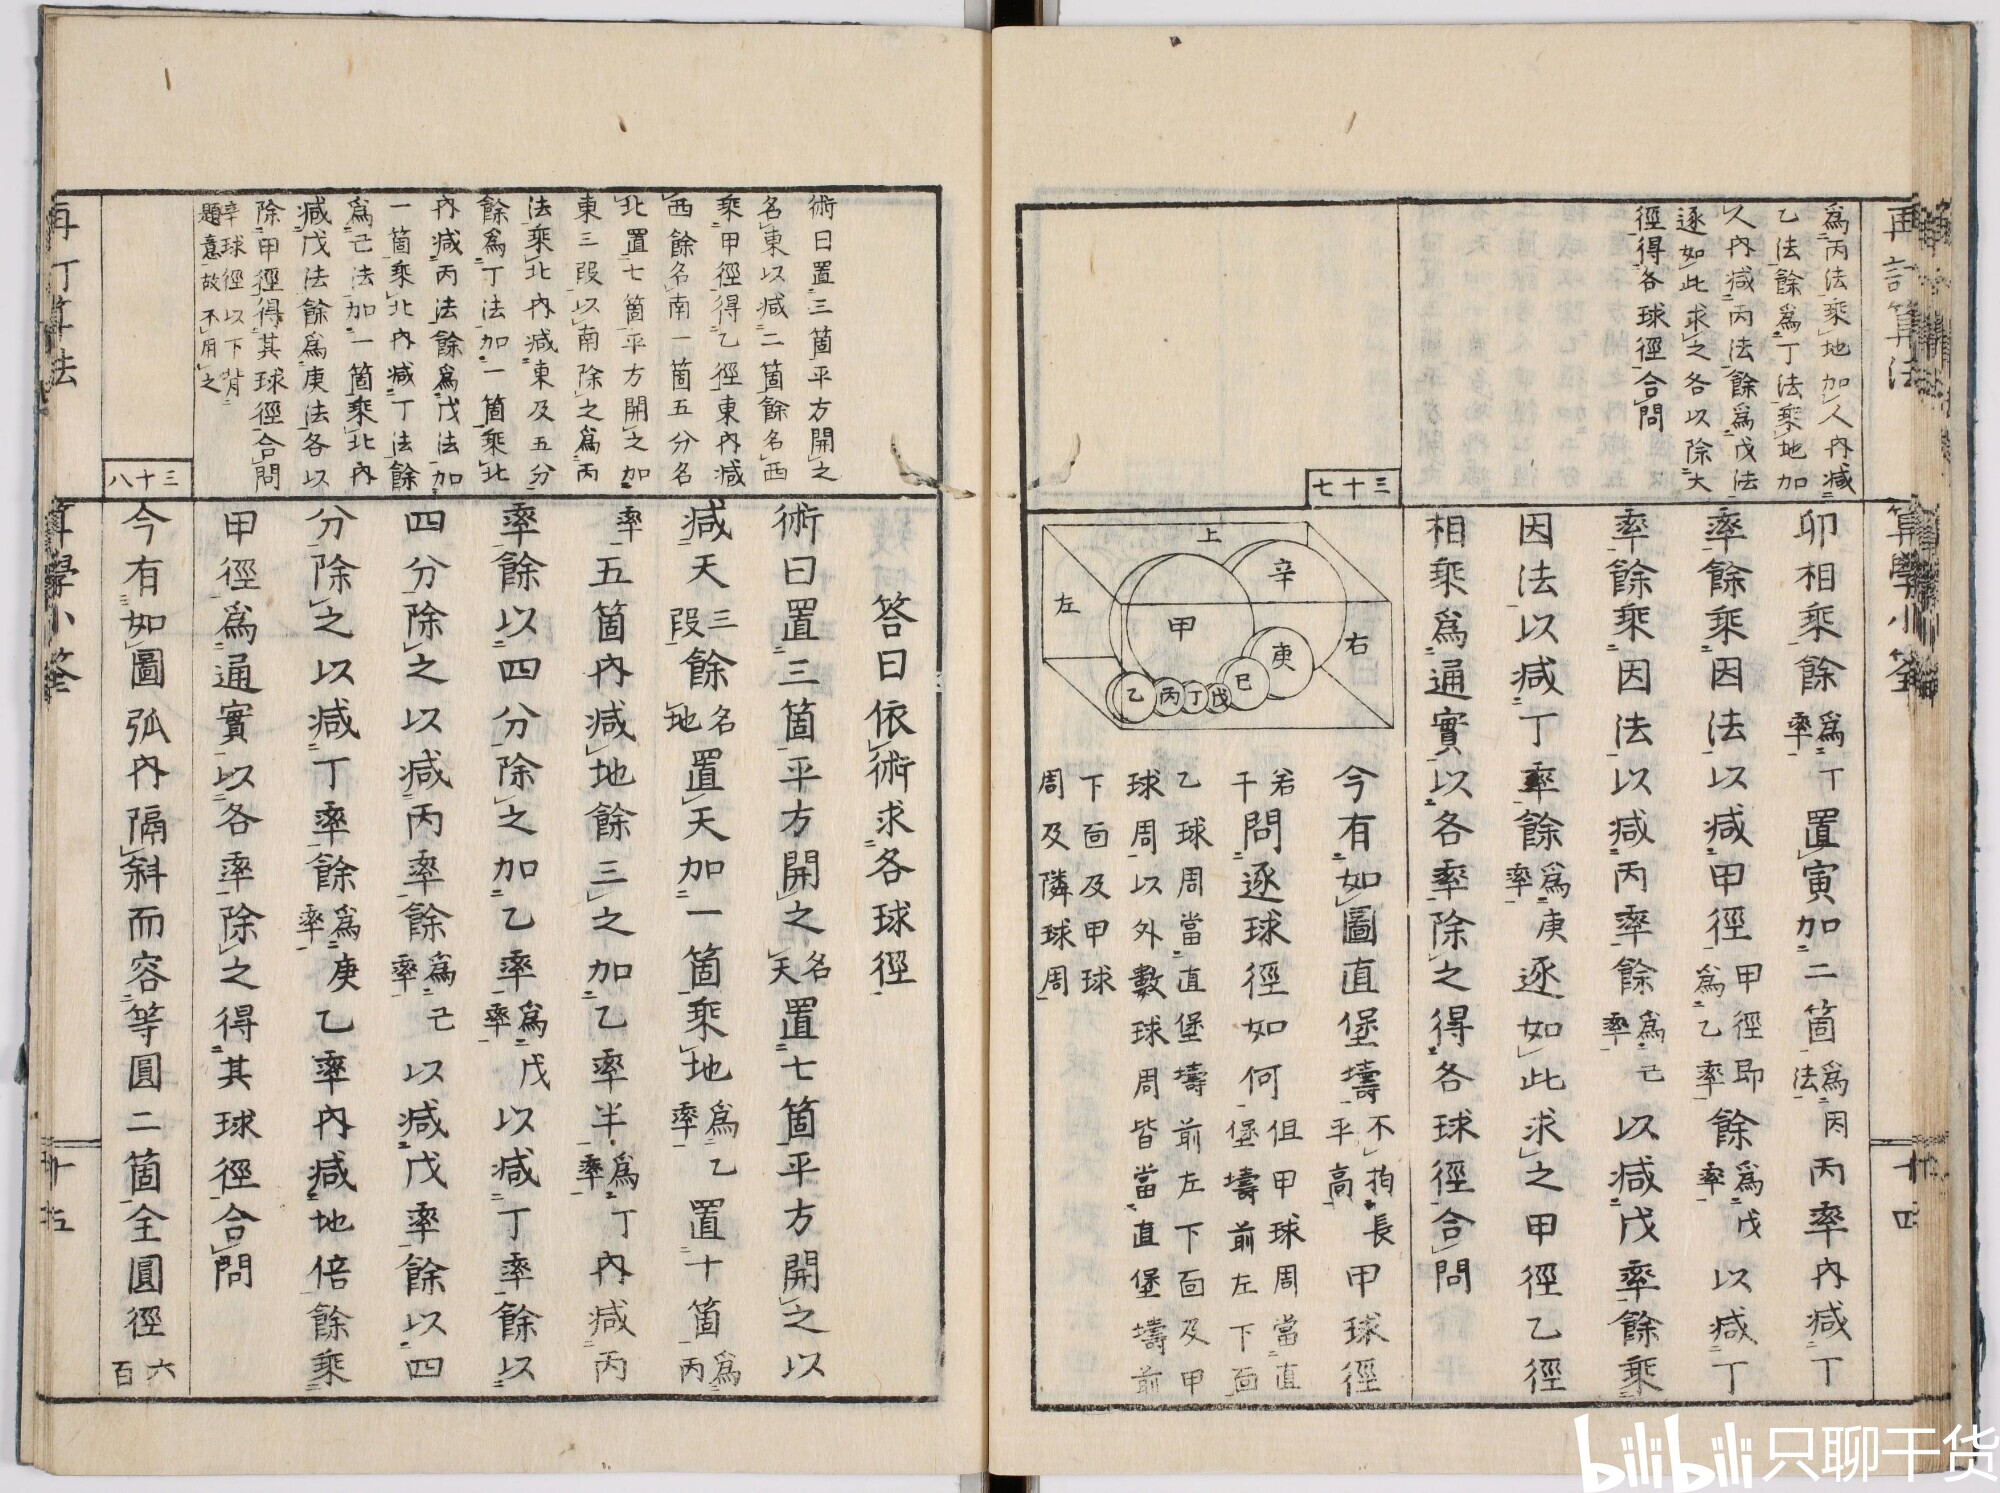 再訂算法
算學小筌
十四
爲丙法乘地加人內減
乙法餘爲丁法乘地加
人內減丙法餘爲戊法
逐如此求之各以除大
徑得各球徑合問
三十七
卯相乘餘爲丁率置寅加二箇爲因法丙率內減丁
率餘乘因法以減甲徑甲徑即爲乙率餘爲戊率以減丁
率餘乘因法以減丙率餘爲己率以減戊率餘乘
因法以減丁率餘爲庚率逐如此求之甲徑乙徑
相乘爲通實以各率除之得各球徑合問
上
左
右
甲
辛
庚
巳
戊
丁
丙
乙
今有如圖直堡壔不拘長平高甲球徑
若干問逐球徑如何但甲球周當直堡壔前左下面
乙球周當直堡壔前左下面及甲
球周以外數球周皆當直堡壔前
下面及甲球
周及隣球周
術曰置三箇平方開之
名東以減二箇餘名西
乘甲徑得乙徑東內減
西餘名南一箇五分名
北置七箇平方開之加
東三段以南除之爲丙
法乘北內減東及五分
餘爲丁法加一箇乘北
內減丙法餘爲戊法加
一箇乘北內減丁法餘
爲己法加一箇乘北內
減戊法餘爲庚法各以
除甲徑得其球徑合問
辛球徑以下背
題意故不用之
三十八
答曰依術求各球徑
術曰置三箇平方開之名天置七箇平方開之以
減天三段餘名地置天加一箇乘地爲乙率置十箇爲丙
率五箇內減地餘三之加乙率半爲丁率內減丙
率餘以四分除之加乙率爲戊率以減丁率餘以
四分除之以減丙率餘爲己率以減戊率餘以四
分除之以減丁率餘爲庚率乙率內減地倍餘乘
甲徑爲通實以各率除之得其球徑合問
今有如圖弧內隔斜而容等圓二箇全圓徑六百
再訂算法
算學小筌
十五
bilibili 只聊干货